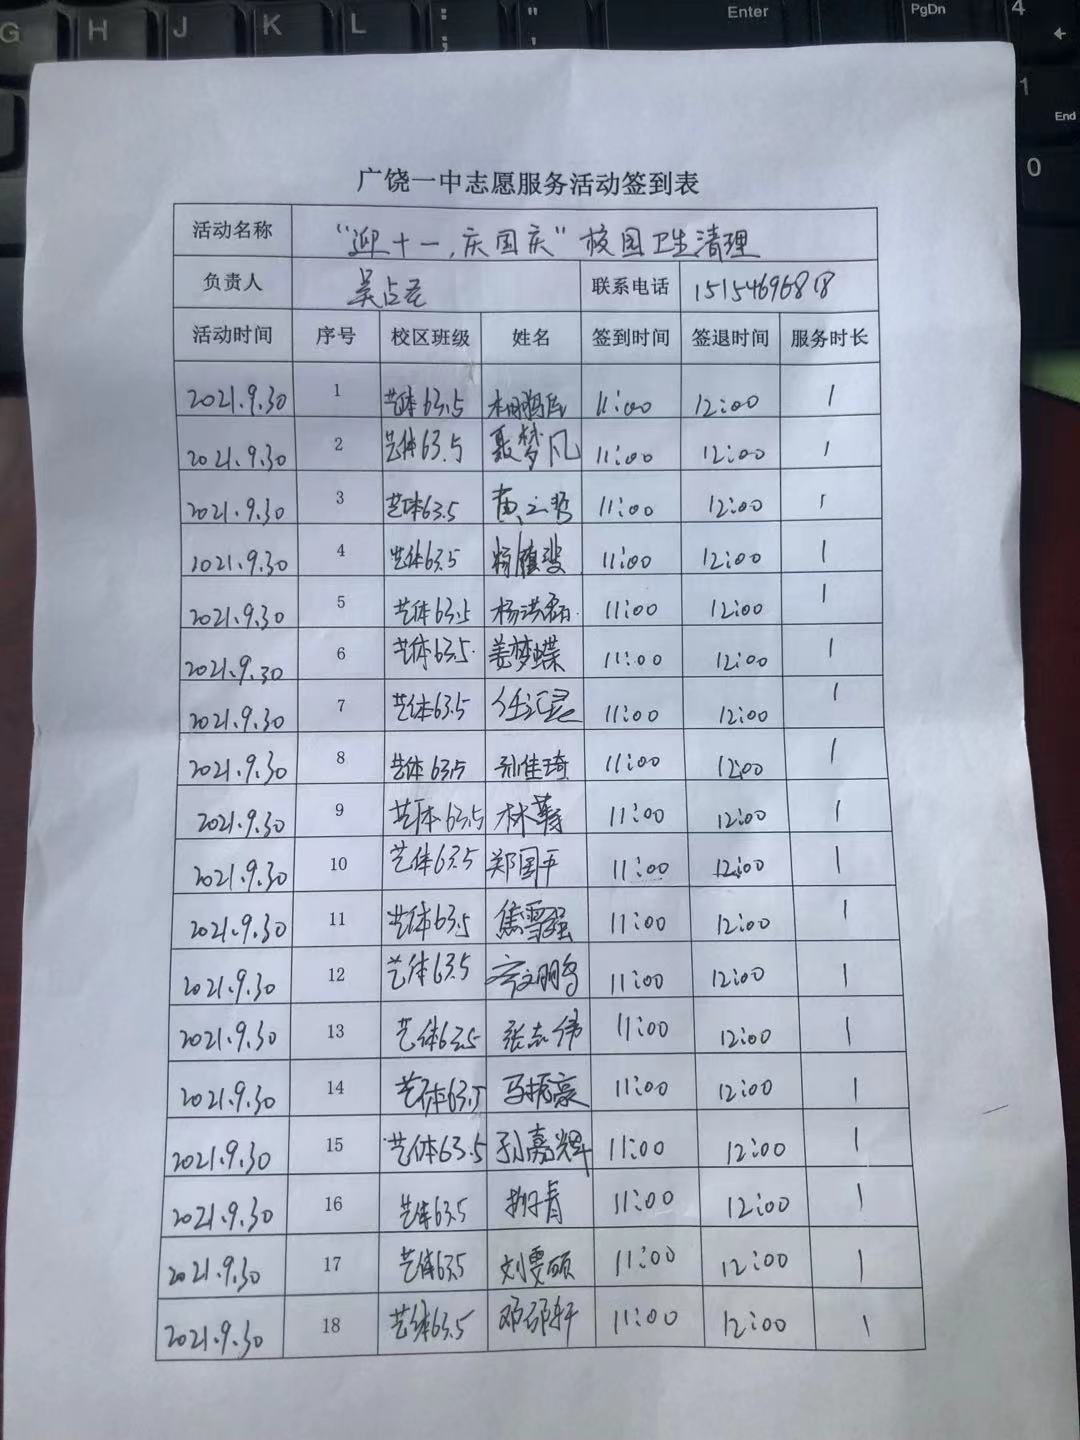 G H J K L ; : " ' Enter PgDn 4 1 End 0
广饶一中志愿服务活动签到表
活动名称 “迎十一,庆国庆”校园卫生清理
负责人 联系电话 15154696818
活动时间 序号 校区班级 姓名 签到时间 签退时间 服务时长
2021.9.30 1 艺体63.5 11:00 12:00 1
2021.9.30 2 艺体63.5 聂梦凡 11:00 12:00 1
2021.9.30 3 艺体63.5 11:00 12:00 1
2021.9.30 4 艺体63.5 11:00 12:00 1
2021.9.30 5 艺体63.5 杨洪磊 11:00 12:00 1
2021.9.30 6 艺体63.5 姜梦蝶 11:00 12:00 1
2021.9.30 7 艺体63.5 任汇灵 11:00 12:00 1
2021.9.30 8 艺体63.5 孙佳琦 11:00 12:00 1
2021.9.30 9 艺体63.5 11:00 12:00 1
2021.9.30 10 艺体63.5 郑国平 11:00 12:00 1
2021.9.30 11 艺体63.5 焦雪强 11:00 12:00 1
2021.9.30 12 艺体63.5 11:00 12:00 1
2021.9.30 13 艺体63.5 张志伟 11:00 12:00 1
2021.9.30 14 艺体63.5 马振豪 11:00 12:00 1
2021.9.30 15 艺体63.5 孙嘉辉 11:00 12:00 1
2021.9.30 16 艺体63.5 11:00 12:00 1
2021.9.30 17 艺体63.5 刘雯硕 11:00 12:00 1
2021.9.30 18 艺体63.5 11:00 12:00 1